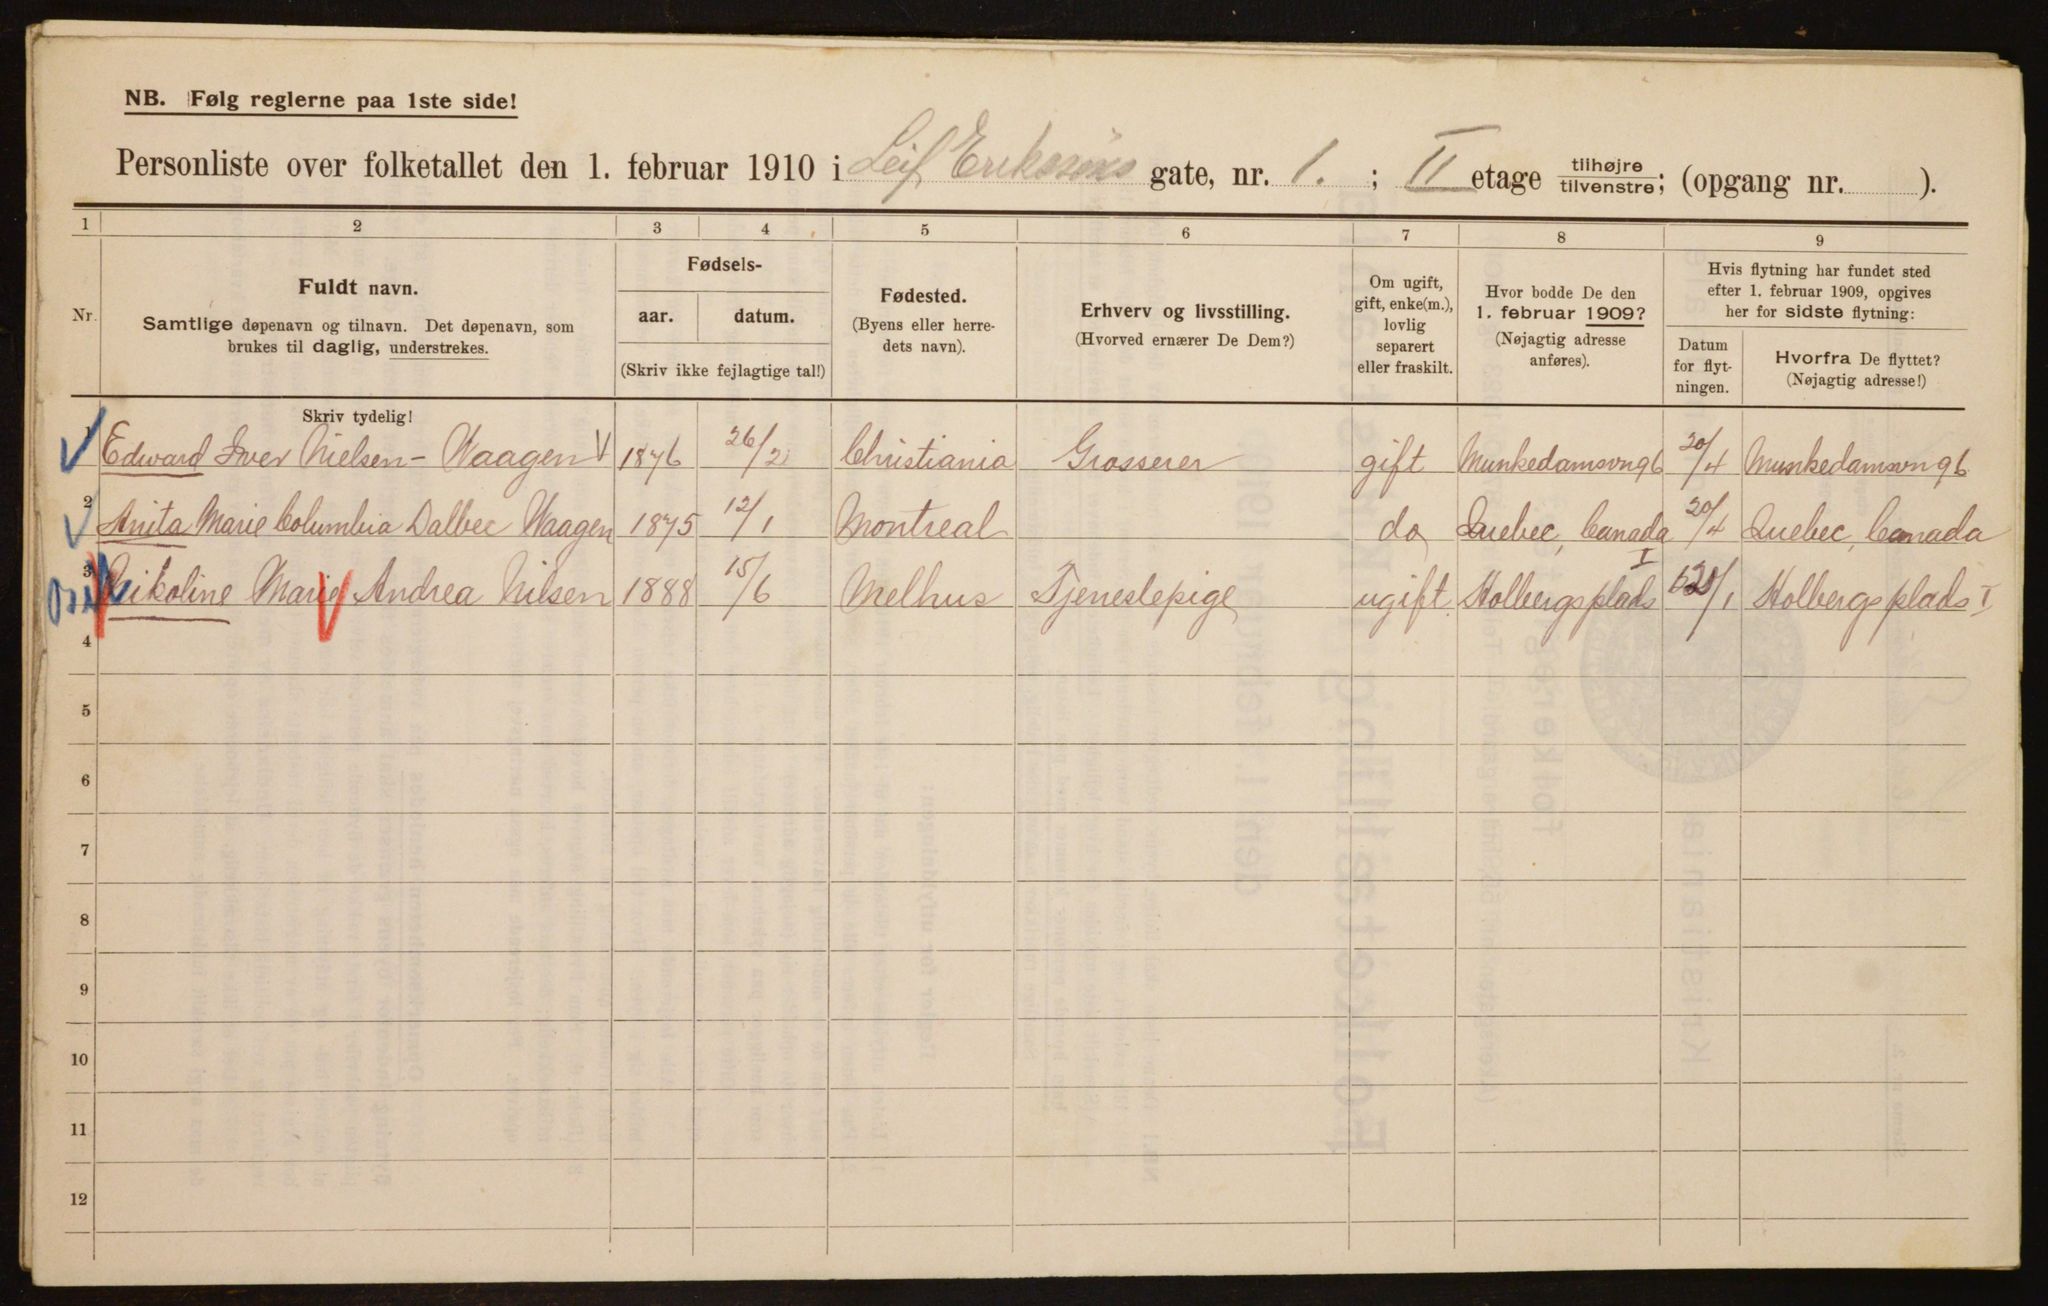 NB. Følg reglerne paa 1ste side!
Personliste over folketallet den 1. februar 1910 i Leif Eriksöns gate, nr. 1. ; II etage tilhøjre / tilvenstre; (opgang nr. ).
1 2 3 4 5 6 7 8 9
Nr.
Fuldt navn.
Samtlige døpenavn og tilnavn. Det døpenavn, som
brukes til daglig, understrekes.
Skriv tydelig!
Fødsels-
aar. datum.
(Skriv ikke fejlagtige tal!)
Fødested.
(Byens eller herre-
dets navn).
Erhverv og livsstilling.
(Hvorved ernærer De Dem?)
Om ugift,
gift, enke(m.),
lovlig
separert
eller fraskilt.
Hvor bodde De den
1. februar 1909?
(Nøjagtig adresse
anføres).
Hvis flytning har fundet sted
efter 1. februar 1909, opgives
her for sidste flytning:
Datum
for flyt-
ningen.
Hvorfra De flyttet?
(Nøjagtig adresse!)
1 Edward Iver Nielsen- Waagen 1876 26/2 Christiania Grosserer gift Munkedamsvn 96 20/4 Munkedamsvn 96
2 Anita Marie Columbia Dalbec Waagen 1875 12/1 Montreal do Quebec, Canada 20/4 Quebec, Canada
3 Nikoline Marie Andrea Nilsen 1888 15/6 Melhus Tjenestepige ugift Holbergsplads I /1 Holbergsplads I
4
5
6
7
8
9
10
11
12